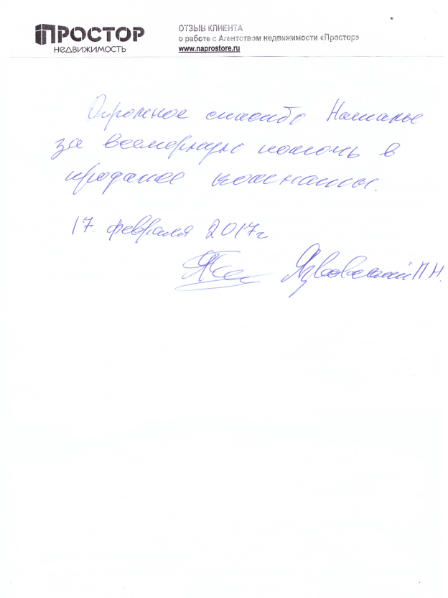 ПРОСТОР
НЕДВИЖИМОСТЬ
ОТЗЫВ КЛИЕНТА
о работе с Агентством недвижимости «Простор»
www.naprostore.ru
Огромное спасибо Наталье
за всемерную помощь в
продаже комнаты.
17 февраля 2017г
П.Н.